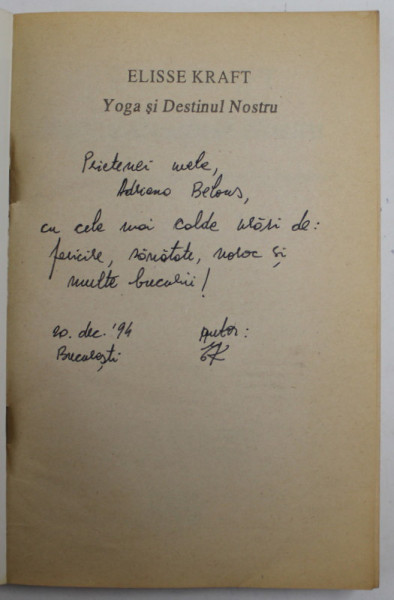 ELISSE KRAFT
Yoga și Destinul Nostru
Prietenei mele,
Adriana Belous,
cu cele mai calde urări de:
fericire, sănătate, noroc și
multe bucurii!
20. dec. '94 autor:
București EK